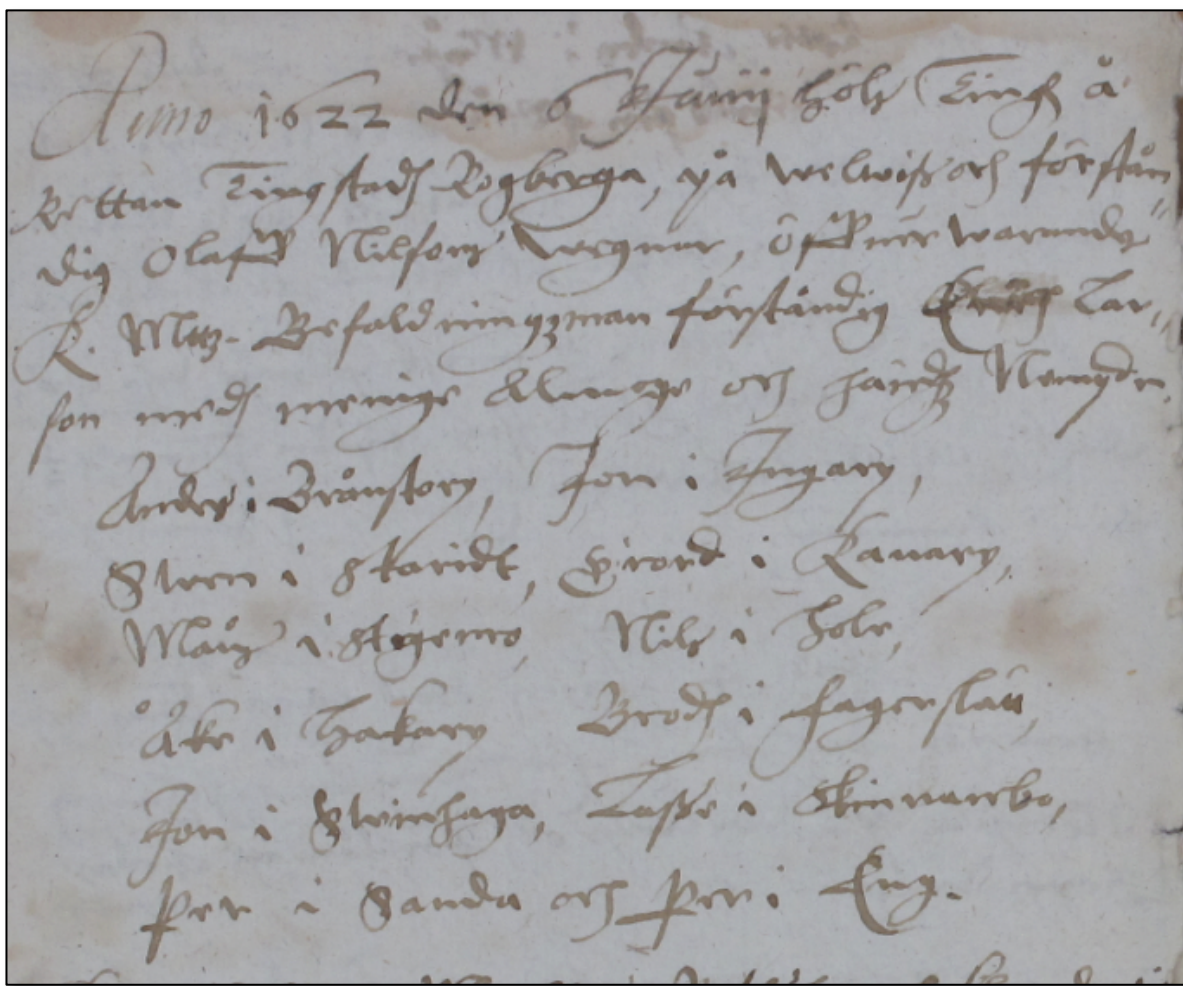 Anno 1622 den 6 Junij hölz Tingh å
Rettan Tingstadh Rogberga, på welwiß och förstån„
dig Olaff Nilsons wegnar, öffuerwarande
K. Mttz. Befaldningzman förståndig Erich Lar„
son medh menige Almoge och häredz Nempden
Anders i Brånstory, Jon i Ingary,
Suen i Staridt, Girord i Kauary,
Måns i Stigemo, Nils i Hole,
Åke i Hakary Brodh i Fagerslätt,
Jon i Stenshaga, Lasse i Skinnarebo,
Per i Sanda och Per i Eng.